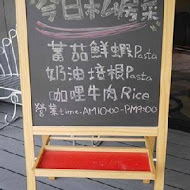 今日私房菜
蕃茄鮮蝦Pasta
奶油培根Pasta
咖哩牛肉Rice
營業time:AM10:00-PM9:00